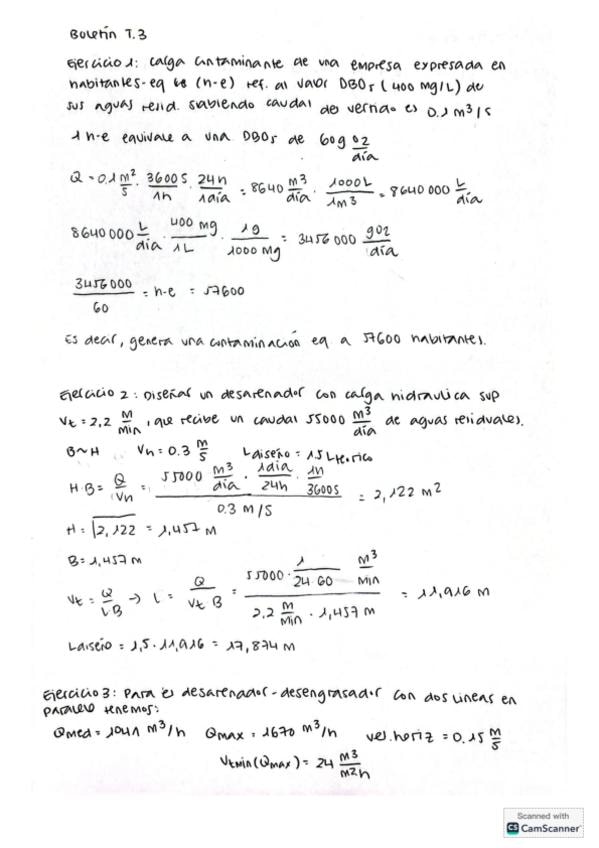 Boletín T.3
Ejercicio 1: carga contaminante de una empresa expresada en
habitantes-eq (h-e) ref. al valor DBO5 (400 mg/L) de
sus aguas resid. sabiendo caudal de vertido es 0.1 m³/s
1 h-e equivale a una DBO5 de 60 g O2/día
Q = 0,1 m²/s · 3600 s/1h · 24h/1día = 8640 m³/día · 1000L/1m³ = 8640 000 L/día
8640000 L/día · 400 mg/1L · 1g/1000 mg = 3456 000 gO2/día
3456000/60 = h-e = 57600
Es decir, genera una contaminación eq a 57600 habitantes.
Ejercicio 2: Diseñar un desarenador con carga hidraulica sup
Vt = 2,2 m/min, que recibe un caudal 55000 m³/día de aguas residuales.
B~H Vh = 0.3 m/s Ldiseño = 1.5 Lteorico
H·B = Q/Vh = (55000 m³/día · 1día/24h · 1h/3600s)/(0.3 m/s) = 2,122 m²
H = √2,122 = 1,457 m
B = 1,457 m
Vt = Q/(L·B) → L = Q/(Vt B) = (55000 · 1/(24·60) m³/min)/(2,2 m/min · 1,457 m) = 11,916 m
Ldiseño = 1,5 · 11,916 = 17,874 m
Ejercicio 3: Para el desarenador-desengrasador con dos lineas en
paralelo tenemos:
Qmed = 1041 m³/h Qmax = 1670 m³/h vel.horiz = 0.15 m/s
Vtmin (Qmax) = 24 m³/m²h
Scanned with
CS CamScanner